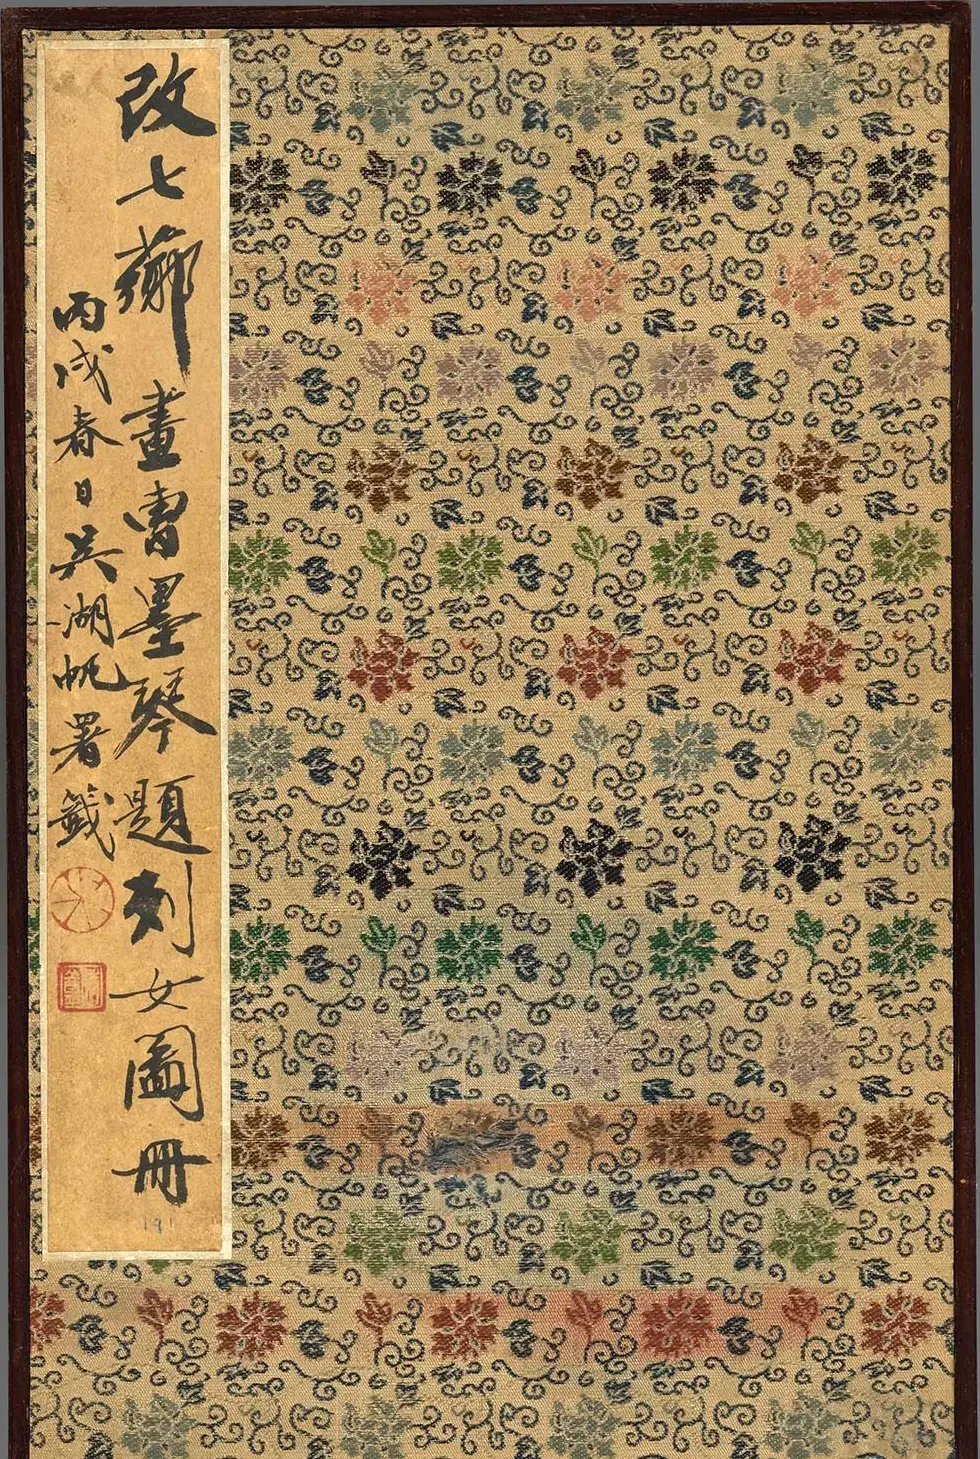 改七薌畫曹墨琴題列女圖冊
丙戌春日吳湖帆署籤